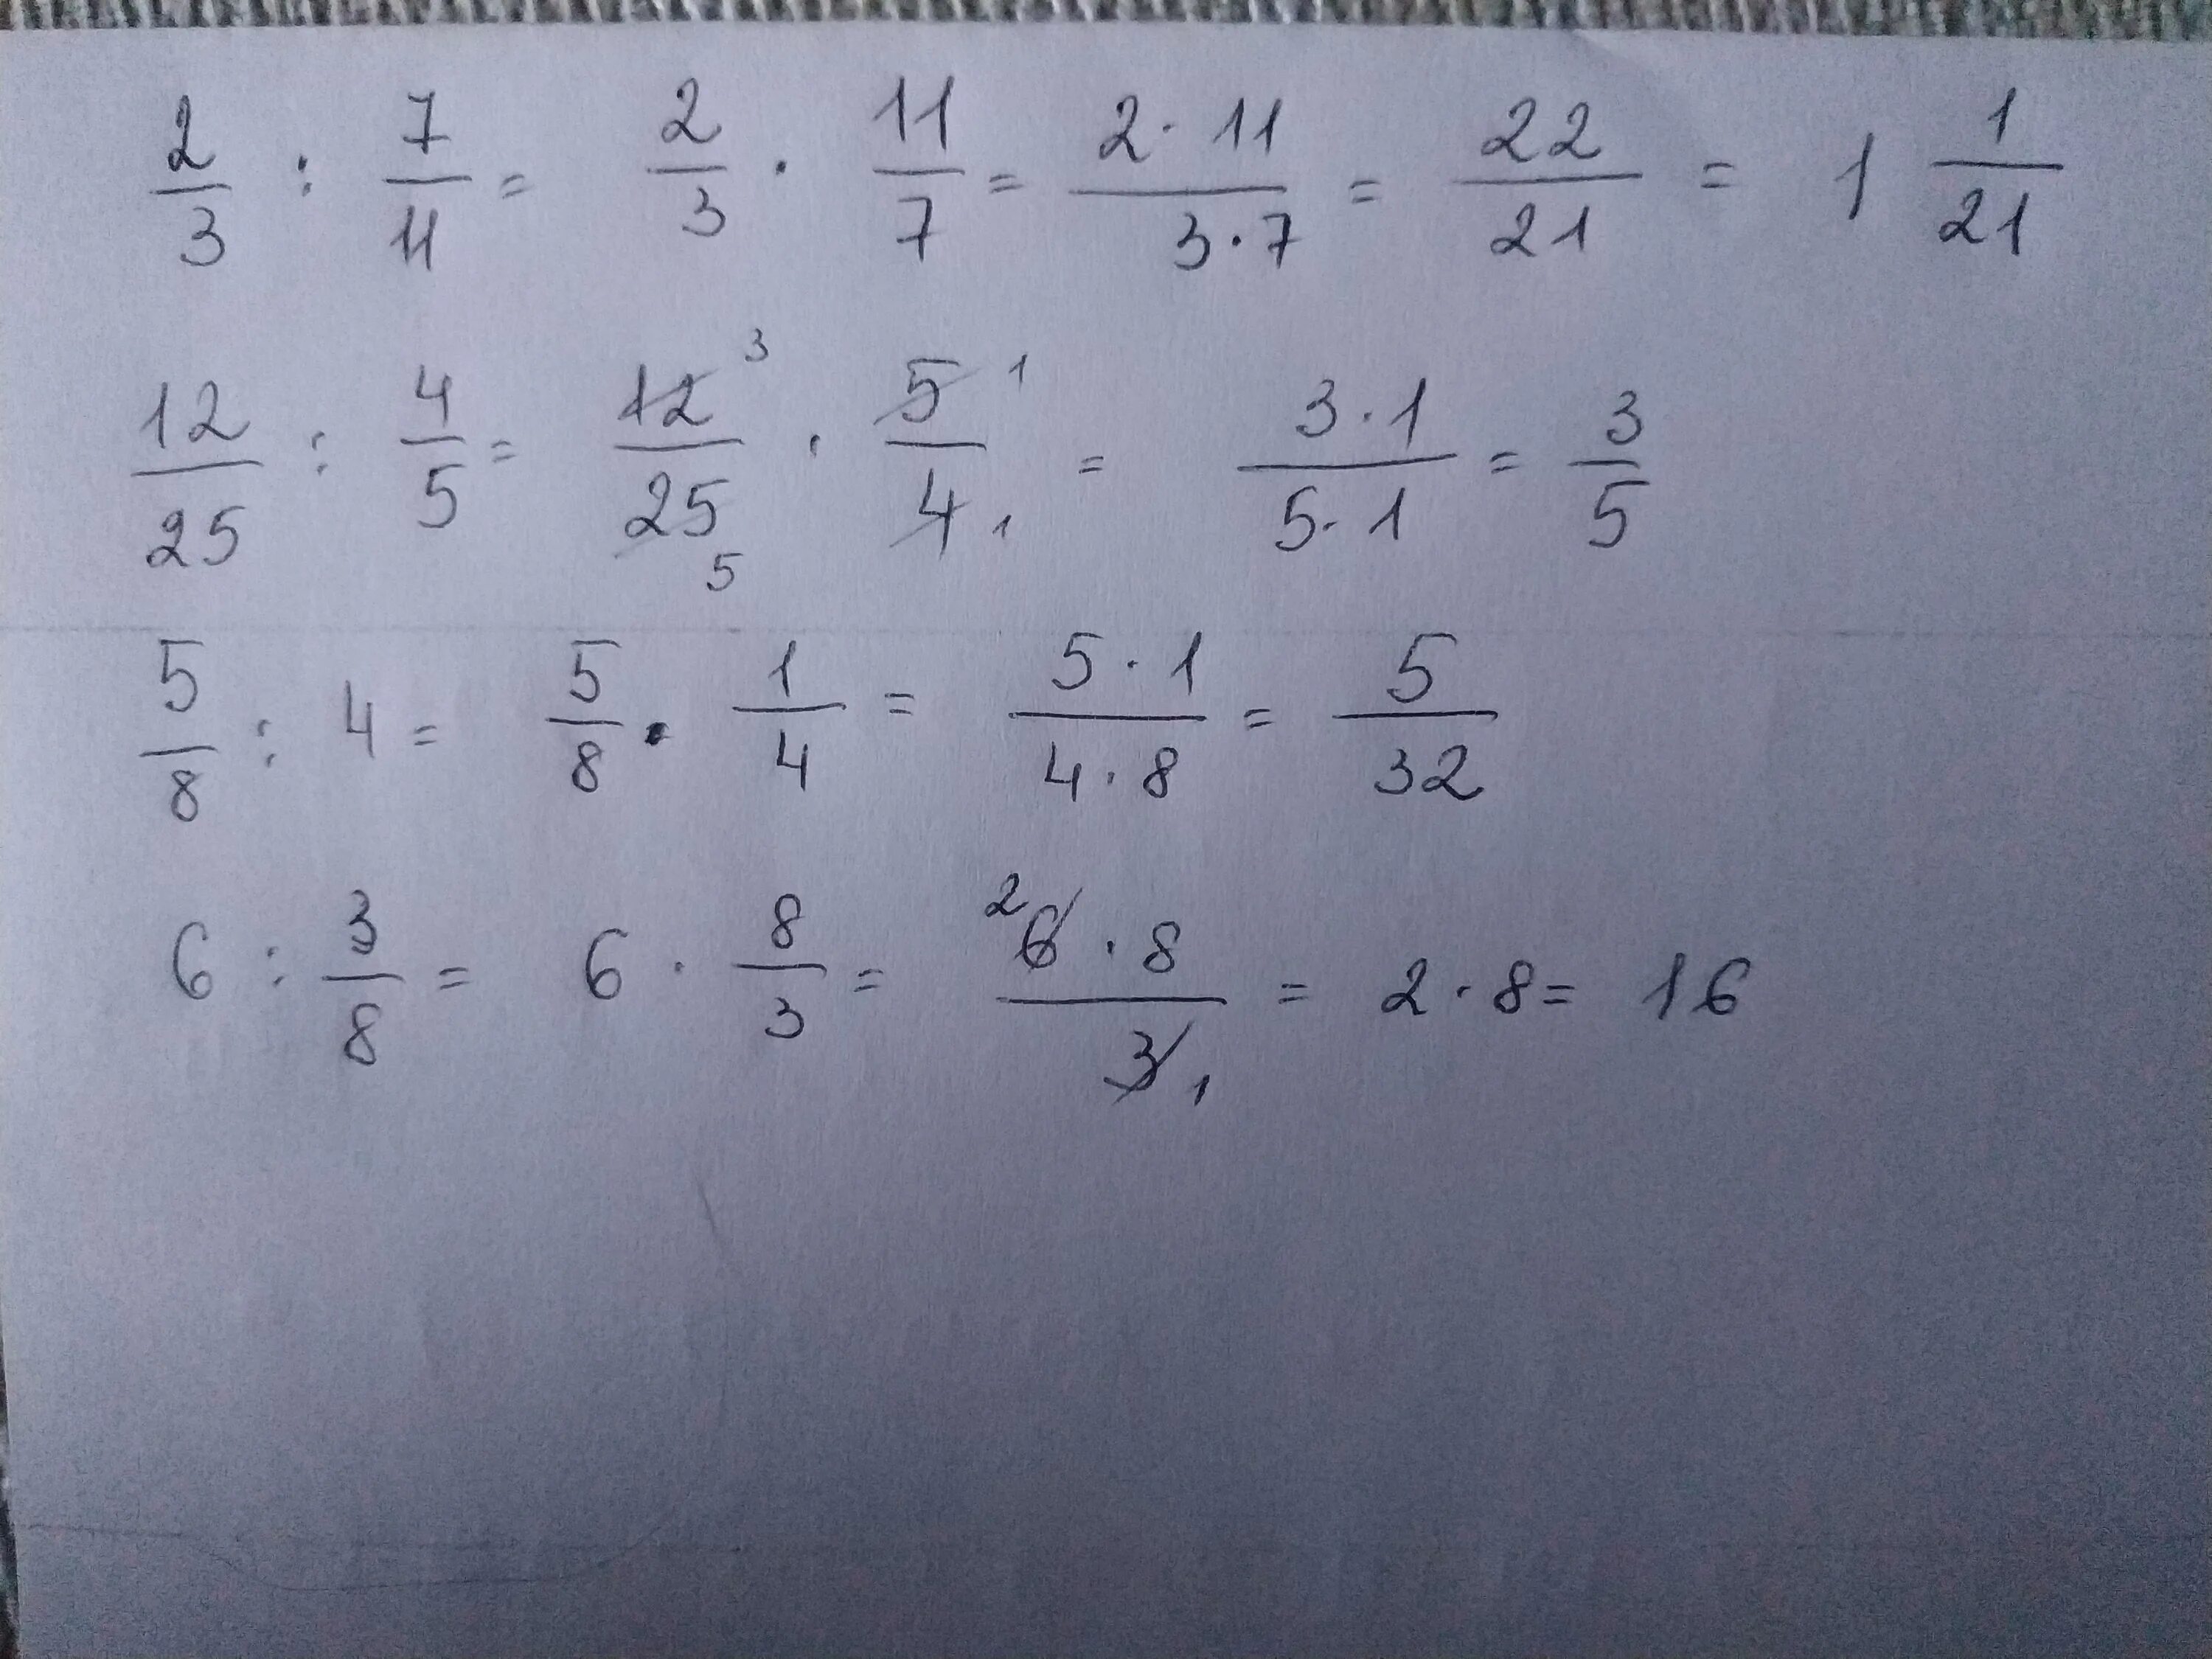 2/3 : 7/11 = 2/3 · 11/7 = 2·11/3·7 = 22/21 = 1 1/21
12/25 : 4/5 = 12 3/25 5 · 5 1/4 1 = 3·1/5·1 = 3/5
5/8 : 4 = 5/8 · 1/4 = 5·1/4·8 = 5/32
6 : 3/8 = 6 · 8/3 = 2 6·8/3 1 = 2·8 = 16